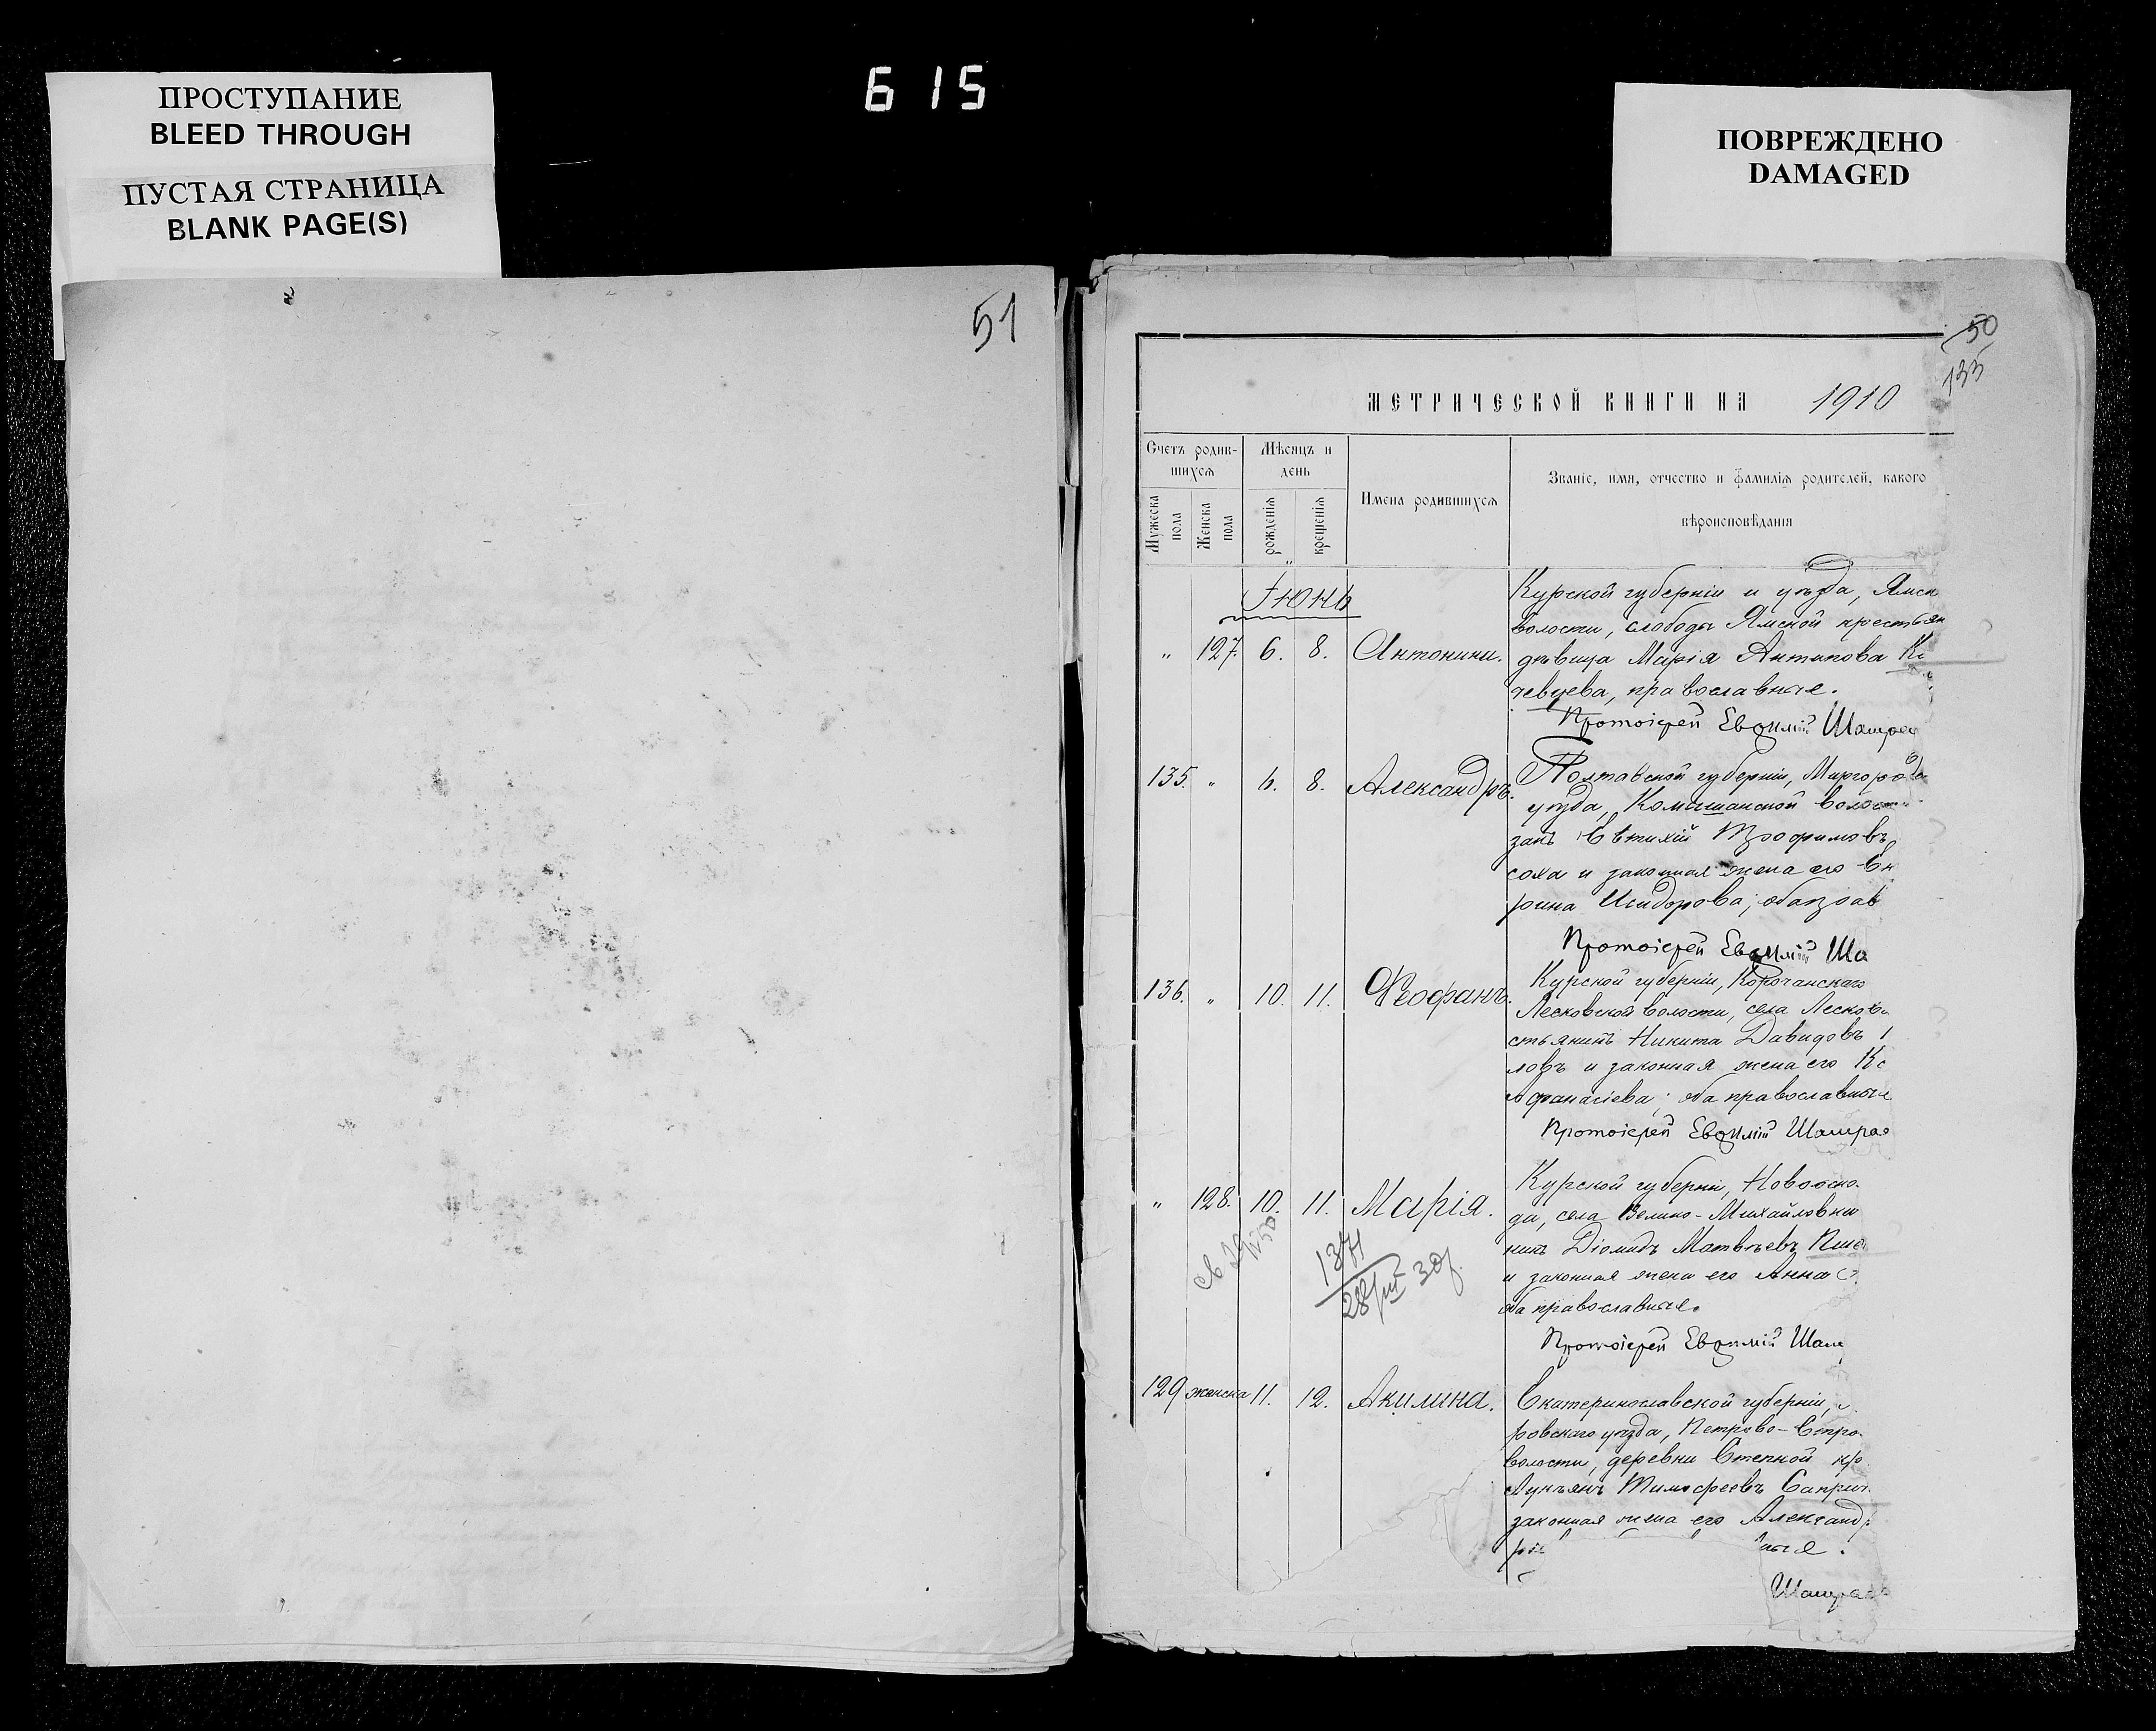 ПРОСТУПАНИЕ
BLEED THROUGH
ПУСТАЯ СТРАНИЦА
BLANK PAGE(S)
615
ПОВРЕЖДЕНО
DAMAGED
51
50
135
МЕТРИЧЕСКОЙ КНИГИ НА 1910
Счетъ родив-
шихся
Мѣсяцъ и
день
Имена родившихся
Званіе, имя, отчество и фамилія родителей, какого
вѣроисповѣданія
Мужеска
пола
Женска
пола
рожденія
крещенія
Іюнь
Курской губерніи и уѣзда, Ямск
волости, слободы Ямской крестьян
„ 127. 6. 8. Антонина. дѣвица Марія Антипова К
чевцева, православные.
Протоіерей Евѳимій Шамра
135. „ 6. 8. Александръ. Полтавской губерніи, Миргород
уѣзда, Комышанской волос
закъ Евтихій Трофимовъ
соха и законная жена его Ек
рина Исидорова; оба прав
Протоіерей Евѳимій Ша
136. „ 10. 11. Феофанъ. Курской губерніи, Корочанскаго
Лесковской волости, села Лесков
стьянинъ Никита Давидовъ
ловъ и законная жена его Кс
Афанасіева; оба православные
Протоіерей Евѳимій Шамра
„ 128. 10. 11. Марія. Курской губерніи, Новооско
да, села Велико-Михайловки
нинъ Діомидъ Матвѣевъ
и законная жена его Анна
оба православные.
28/III 30г.
Протоіерей Евѳимій Шам
129 женска 11. 12. Акилина. Екатеринославской губерніи,
ровскаго уѣзда, Петрово-
волости, деревни Степной кр
Лукьянъ Тимофеевъ Саприч
законная жена его Александр
ные.
Шамра